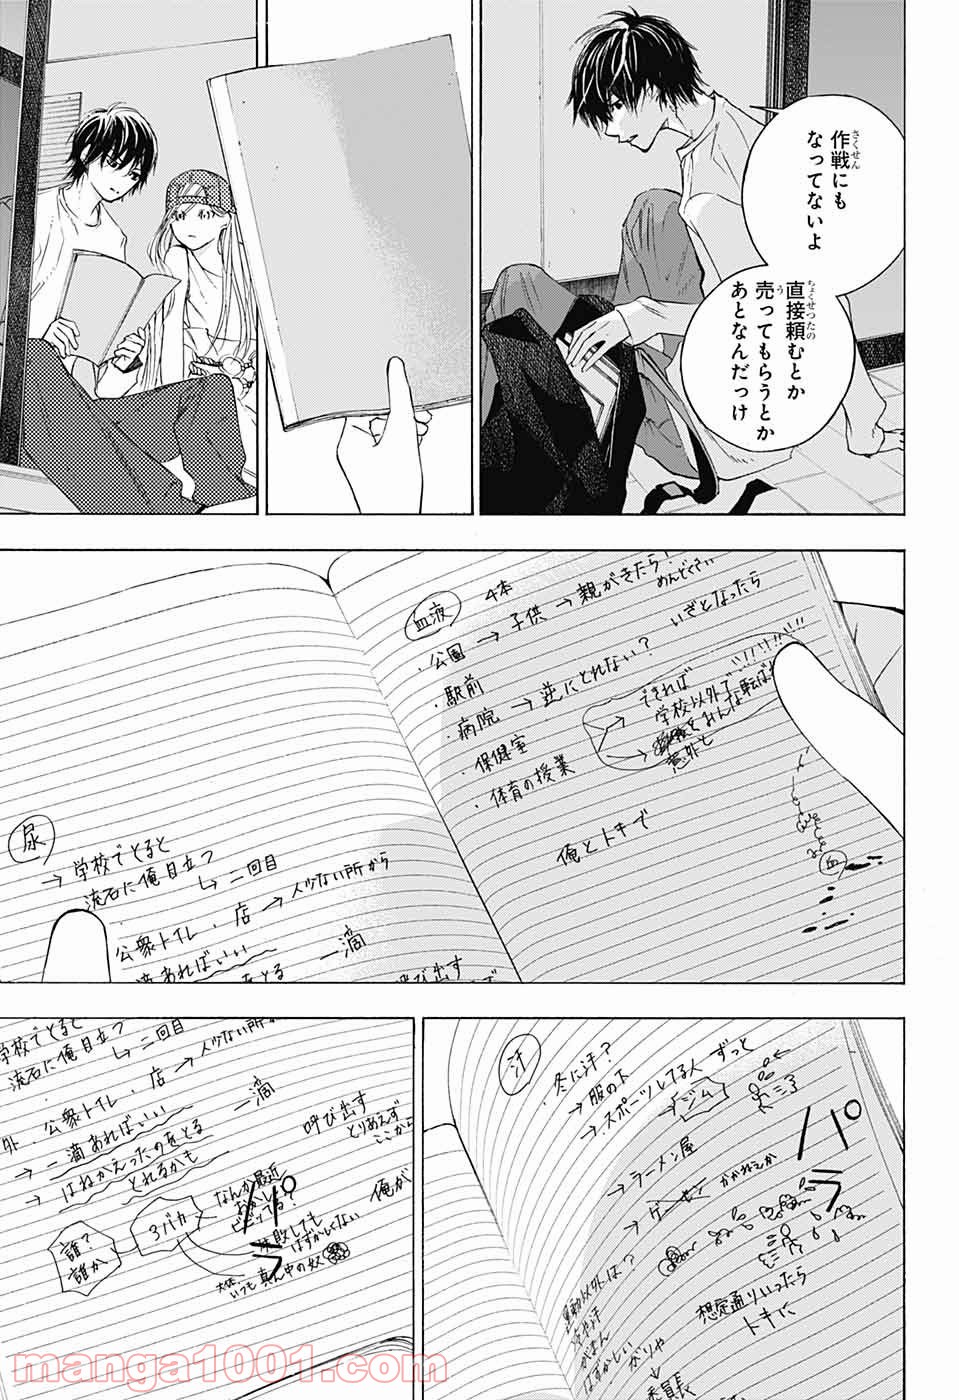 作戦にも
なってないよ
直接頼むとか
売ってもらうとか
あとなんだっけ
さくせん
ちょくせつたの
う
血液
4本
・公園→子供→親がきたら!
めんどくさい
・駅前
・病院→逆にとれない?
いざとなったら
・保健室
・体育の授業
できれば
学校以外で
意外と
俺とトキで
血
尿
→学校でとると
流石に俺目立つ
↳二回目
公衆トイレ・店→人少ない所から
一滴あればいい
一滴
呼び出す
学校でとると
流石に俺目立つ
↳二回目
外・公衆トイレ・店→人少ない所か
→一滴あればいい
一滴
→はねかえったのをとる
とれるかも
呼び出す
とりあえず
ここから
俺が
誰?
誰か
3バカ
なんか最近
おかし
ビビってる?
失敗しても
はずかしくない
大体
いつも真ん中の奴
汗
・冬に汗?
→服の下
→スポーツしてる人
ずっと
ジム
→ラーメン屋
→ゲーセン
パ
ラ
運動以外は?
冷や汗
がまん
はずかしい
ガリや
委員長
想定通りいったら
トキに
manga1001.com